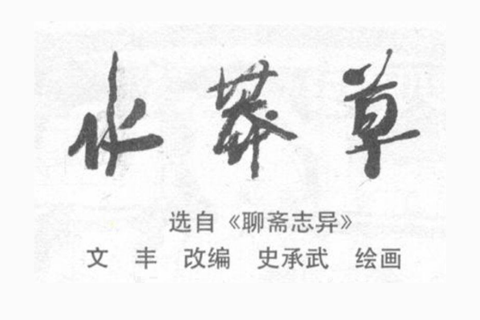 水莽草
选自《聊斋志异》
文 丰 改编 史承武 绘画